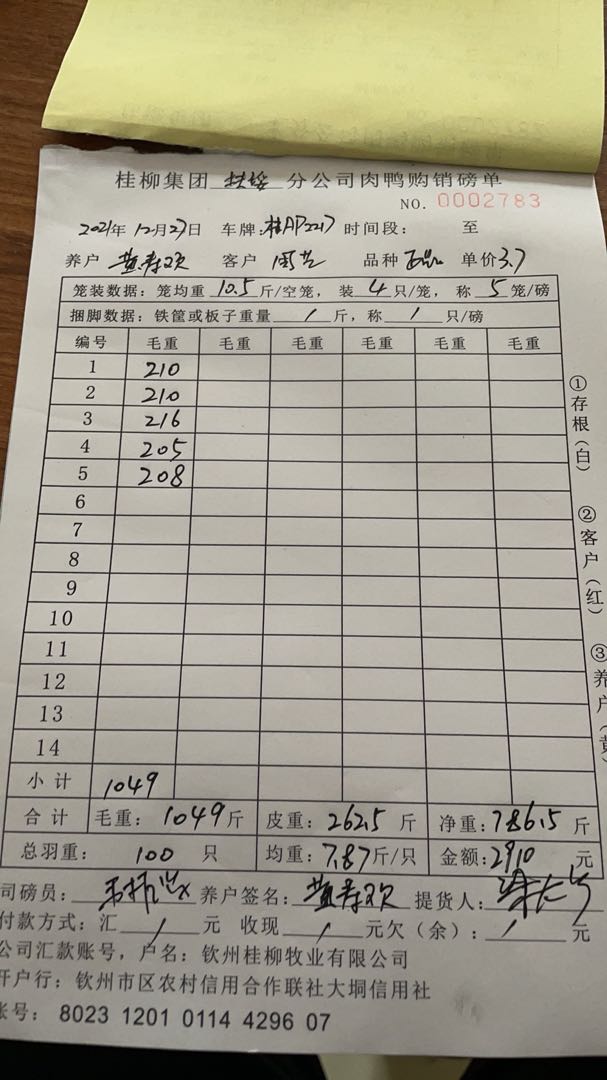 桂柳集团 扶绥 分公司肉鸭购销磅单
NO. 0002783
2021年12月27日 车牌:桂AP2217 时间段: 至
养户 黄寿欢 客户 周艺 品种 单价3.7
笼装数据:笼均重 10.5 斤/空笼, 装 4 只/笼, 称 5 笼/磅
捆脚数据:铁筐或板子重量 / 斤,称 / 只/磅
编号 毛重 毛重 毛重 毛重 毛重 毛重
1 210
2 210
3 216
4 205
5 208
6
7
8
9
10
11
12
13
14
小计 1049
合计 毛重:1049斤 皮重:262.5 斤 净重:786.5 斤
总羽重: 100 只 均重:7.87斤/只 金额:2910 元
司磅员: 养户签名:黄寿欢 提货人:
付款方式:汇 / 元 收现 / 元欠(余): / 元
公司汇款账号,户名:钦州桂柳牧业有限公司
开户行:钦州市区农村信用合作联社大垌信用社
账号: 8023 1201 0114 4296 07
①存根(白)
②客户(红)
③养户(黄